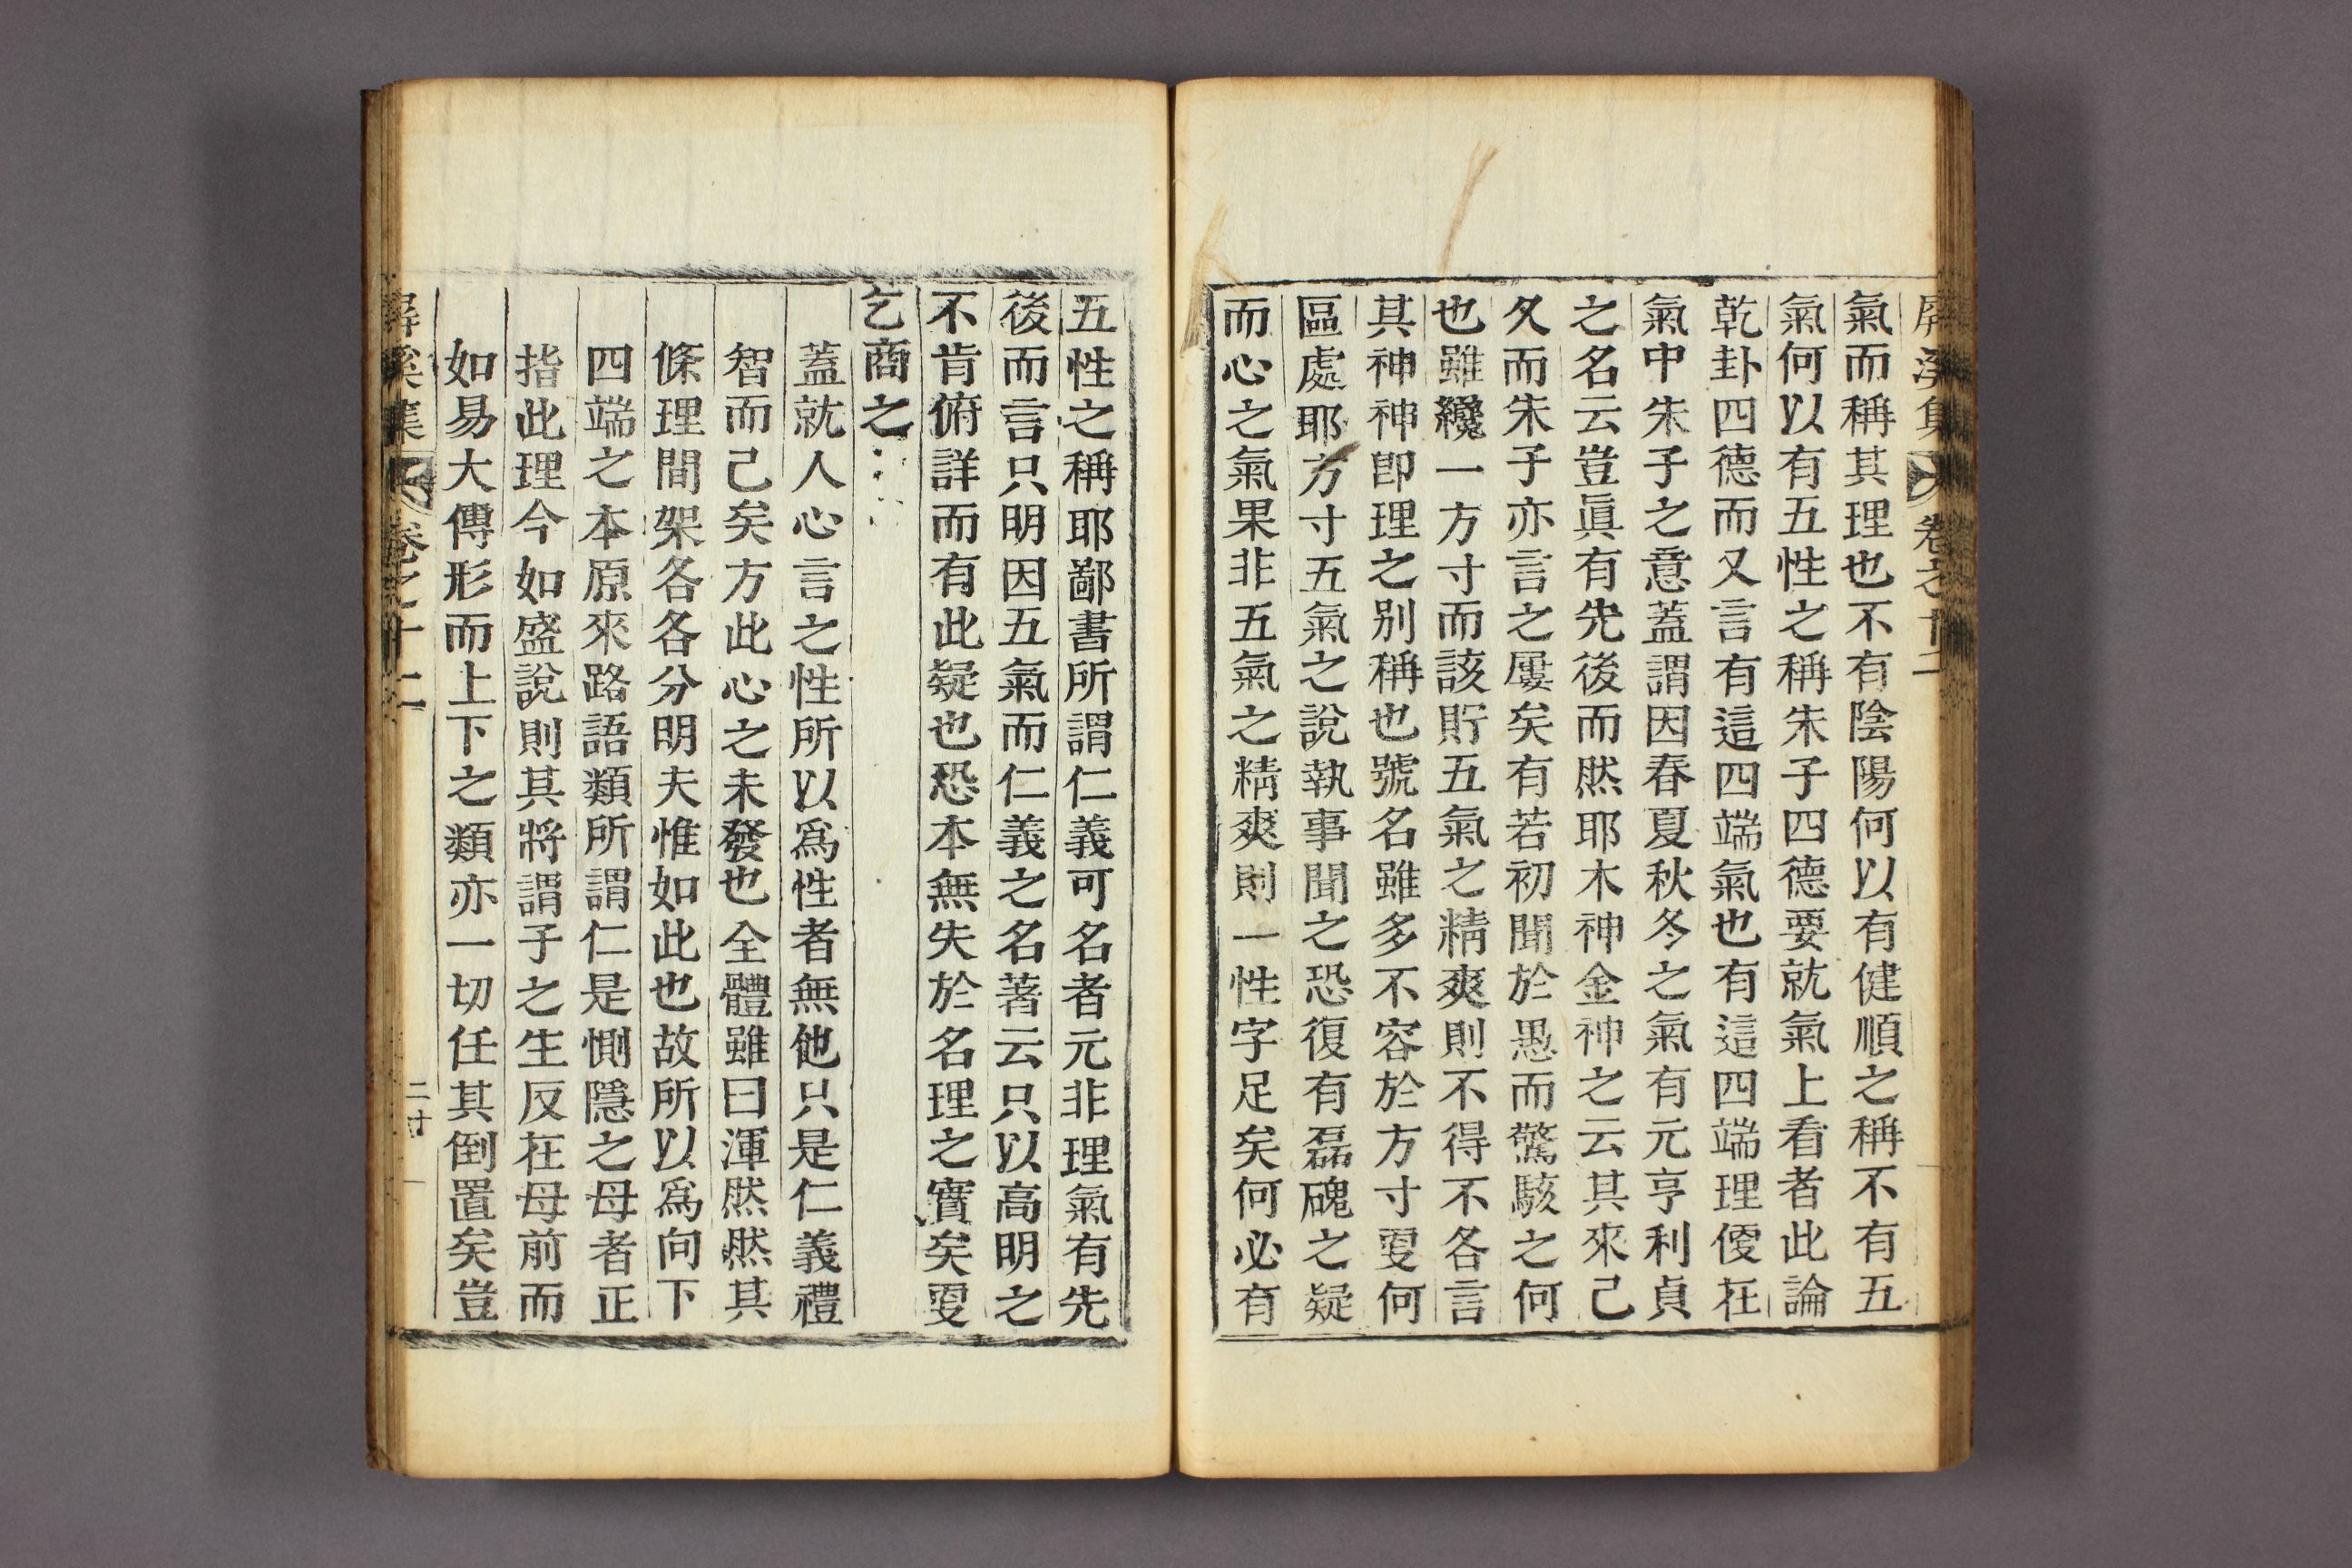 屛溪集 卷之十二
氣而稱其理也不有陰陽何以有健順之稱不有五
氣何以有五性之稱朱子四德要就氣上看者此論
乾卦四德而又言有這四端氣也有這四端理便在
氣中朱子之意蓋謂因春夏秋冬之氣有元亨利貞
之名云豈眞有先後而然耶木神金神之云其來已
久而朱子亦言之屢矣有若初聞於愚而驚駭之何
也雖纔一方寸而該貯五氣之精爽則不得不各言
其神神卽理之別稱也號名雖多不容於方寸更何
區處耶方寸五氣之說執事聞之恐復有磊磈之疑
而心之氣果非五氣之精爽則一性字足矣何必有
五性之稱耶鄙書所謂仁義可名者元非理氣有先
後而言只明因五氣而仁義之名著云只以高明之
不肯俯詳而有此疑也恐本無失於名理之實矣更
乞商之
蓋就人心言之性所以爲性者無他只是仁義禮
智而已矣方此心之未發也全體雖曰渾然然其
條理間架各各分明夫惟如此也故所以爲向下
四端之本原來路語類所謂仁是惻隱之母者正
指此理今如盛說則其將謂子之生反在母前而
如易大傳形而上下之類亦一切任其倒置矣豈
屛溪集 卷之十二 二十